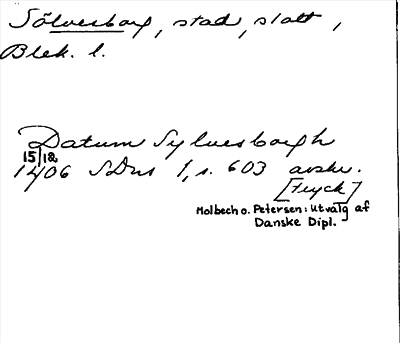 Sölvesborg, stad, slott,
Blek. l.
Datum Sylvesborgh
15/12
1406 SDns 1, s. 603 avskr.
[tryck]
Molbech o. Petersen: Utvalg af
Danske Dipl.